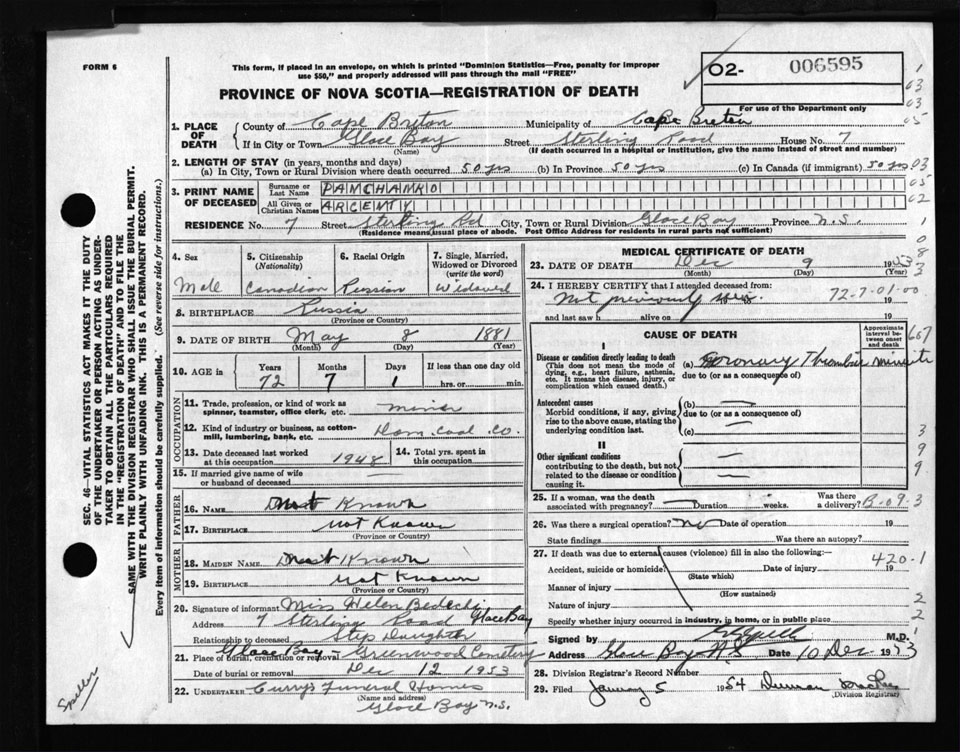 FORM 6
This form, if placed in an envelope, on which is printed "Dominion Statistics—Free, penalty for improper
use $50," and properly addressed will pass through the mail "FREE"
PROVINCE OF NOVA SCOTIA—REGISTRATION OF DEATH
O2- 006595
For use of the Department only
1. PLACE OF DEATH
County of Cape Breton Municipality of Cape Breton
If in City or Town Glace Bay Street Sterling Road House No. 7
(Name) (If death occurred in a hospital or institution, give the name instead of street and number)
2. LENGTH OF STAY (in years, months and days)
(a) In City, Town or Rural Division where death occurred 50 yrs (b) In Province 50 yrs (c) In Canada (if immigrant) 50 yrs
3. PRINT NAME OF DECEASED
Surname or Last Name PAMCHAMKO
All Given or Christian Names ARCENTY
RESIDENCE No. 7 Street Sterling Rd City, Town or Rural Division Glace Bay Province N.S.
(Residence means usual place of abode. Post Office Address for residents in rural parts not sufficient)
4. Sex
Male
5. Citizenship
(Nationality)
Canadian
6. Racial Origin
Russian
7. Single, Married, Widowed or Divorced
(write the word)
Widowed
8. BIRTHPLACE Russia
(Province or Country)
9. DATE OF BIRTH May 8 1881
(Month) (Day) (Year)
10. AGE in Years Months Days If less than one day old
72 7 1 hrs. or min.
OCCUPATION
11. Trade, profession, or kind of work as
spinner, teamster, office clerk, etc. miner
12. Kind of industry or business, as cotton-
mill, lumbering, bank, etc. Dom. Coal Co.
13. Date deceased last worked
at this occupation 1948
14. Total yrs. spent in
this occupation
15. If married give name of wife
or husband of deceased
FATHER
16. NAME Not Known
17. BIRTHPLACE Not Known
(Province or Country)
MOTHER
18. MAIDEN NAME Not Known
19. BIRTHPLACE Not Known
(Province or Country)
20. Signature of informant Miss Helen
Address 7 Sterling Road Glace Bay
Relationship to deceased Step Daughter
Glace Bay
21. Place of burial, cremation or removal Greenwood Cemetery
Date of burial or removal Dec 12 1953
22. UNDERTAKER Curry's Funeral Homes
(Name and address)
Glace Bay N.S.
MEDICAL CERTIFICATE OF DEATH
23. DATE OF DEATH Dec 9 1953
(Month) (Day) (Year)
24. I HEREBY CERTIFY that I attended deceased from:
Not previously 72-7-01-00
19
and last saw h alive on 19
CAUSE OF DEATH
Approximate interval between onset and death
Disease or condition directly leading to death
(This does not mean the mode of
dying, e.g., heart failure, asthenia,
etc. It means the disease, injury, or
complication which caused death.)
(a) Coronary
due to (or as a consequence of)
Antecedent causes
Morbid conditions, if any, giving
rise to the above cause, stating the
underlying condition last.
(b)
due to (or as a consequence of)
(c)
II
Other significant conditions
contributing to the death, but not
related to the disease or condition
causing it.
25. If a woman, was the death
associated with pregnancy? Duration weeks. Was there a delivery? B-09-3
26. Was there a surgical operation? no Date of operation 19
State findings Was there an autopsy?
27. If death was due to external causes (violence) fill in also the following:—
420-1
Accident, suicide or homicide? Date of injury 19
(State which)
Manner of injury
(How sustained)
Nature of injury
Specify whether injury occurred in industry, in home, or in public place
Signed by M.D.
Address Glace Bay NS Date 10 Dec 1953
28. Division Registrar's Record Number
29. Filed January 5 1954 Duncan
(Division Registrar)
SEC. 46—VITAL STATISTICS ACT MAKES IT THE DUTY
OF THE UNDERTAKER OR PERSON ACTING AS UNDER-
TAKER TO OBTAIN ALL THE PARTICULARS REQUIRED
IN THE "REGISTRATION OF DEATH" AND TO FILE THE
SAME WITH THE DIVISION REGISTRAR WHO SHALL ISSUE THE BURIAL PERMIT.
WRITE PLAINLY WITH UNFADING INK. THIS IS A PERMANENT RECORD.
Every item of information should be carefully supplied. (See reverse side for instructions.)